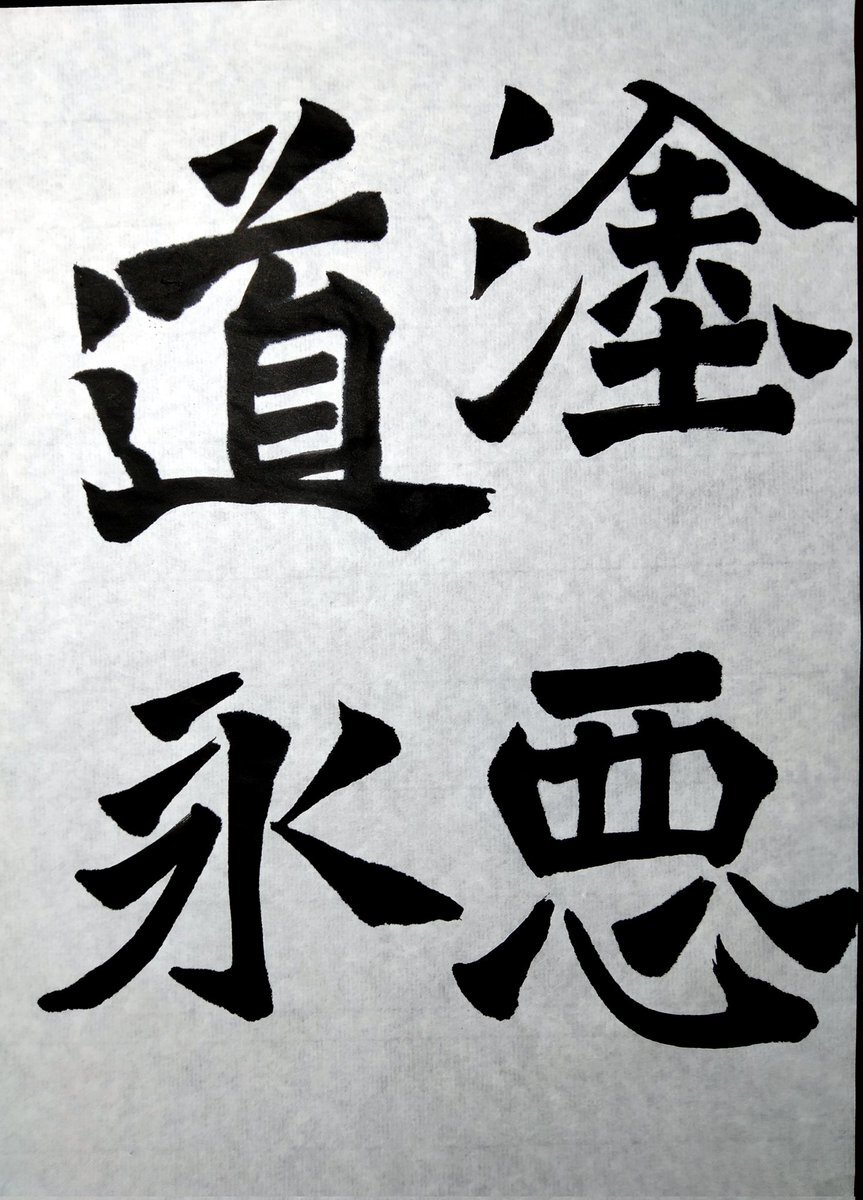 塗悪
道永